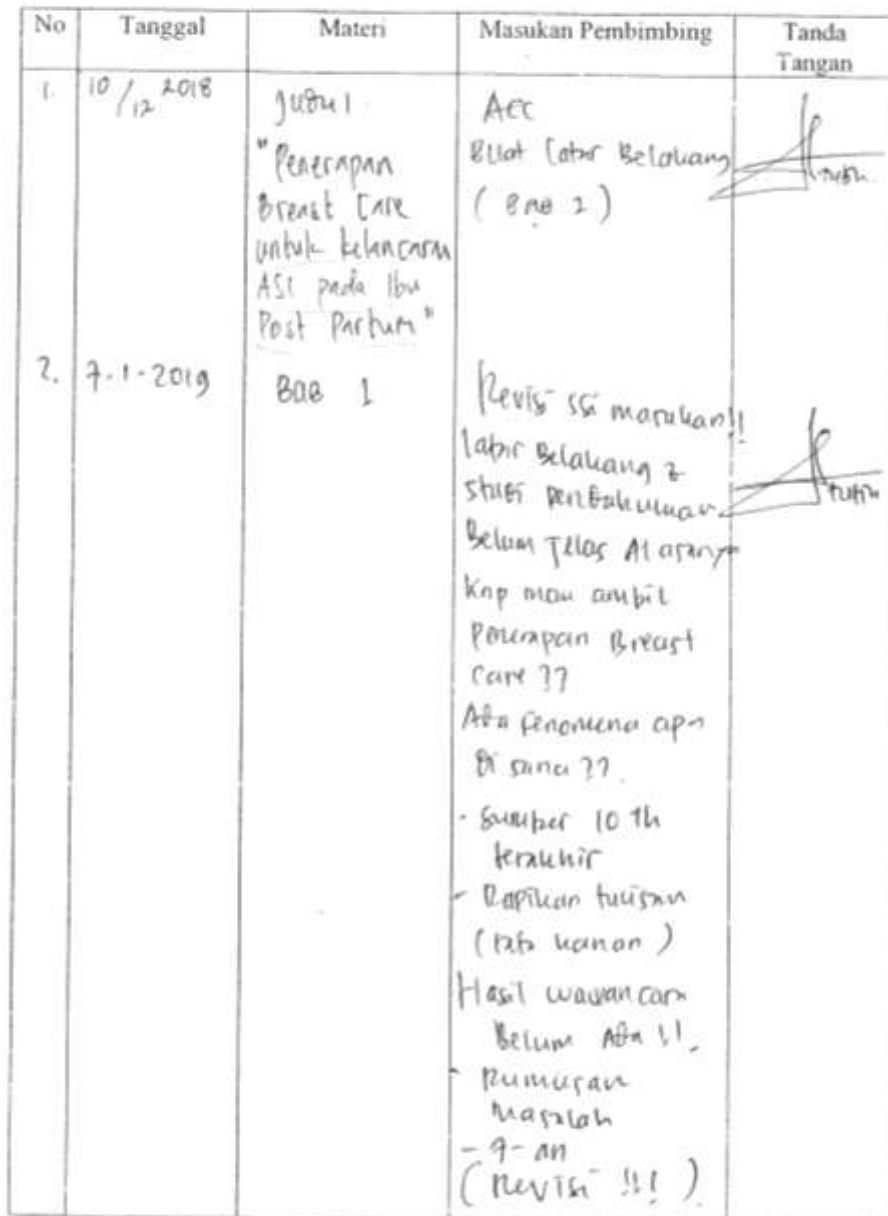 No Tanggal Materi Masukan Pembimbing Tanda Tangan
1. 10/12 2018
Judul
"Penerapan
Breast Care
untuk kelancaran
ASI pada Ibu
Post Partum"
Acc
Buat Latar Belakang
(BAB 1)
2. 7-1-2019
BAB 1
Revisi ssi masukan!!
latar Belakang &
studi pendahuluan
Belum Jelas Alasanya
Knp mau ambil
Penerapan Breast
Care ??
Ada fenomena apa
di sana ??
- Sumber 10 th
terakhir
- Rapikan tulisan
(rata kanan)
Hasil wawancara
Belum Ada !!
- Rumusan
Masalah
(Revisi !!!)